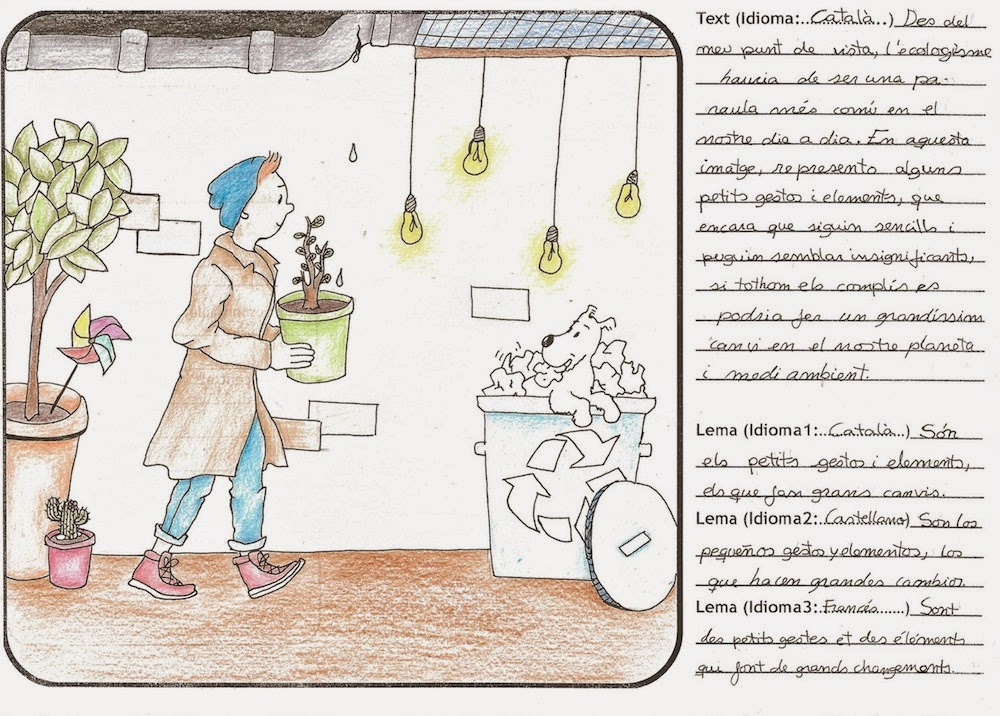 Text (Idioma:..Català...) Des del
meu punt de vista, l'ecologisme
hauria de ser una pa-
raula més comú en el
nostre dia a dia. En aquesta
imatge, represento alguns
petits gestos i elements, que
encara que siguin sencills i
puguin semblar insignificants,
si tothom els complís es
podria fer un grandíssim
canvi en el nostre planeta
i medi ambient.
Lema (Idioma1:..Català...) Són
els petits gestos i elements,
els que fan grans canvis.
Lema (Idioma2:.Castellano) Son los
pequeños gestos y elementos, los
que hacen grandes cambios.
Lema (Idioma3:.Francés.......) Sont
des petits gestes et des éléments
qui font de grands changements.